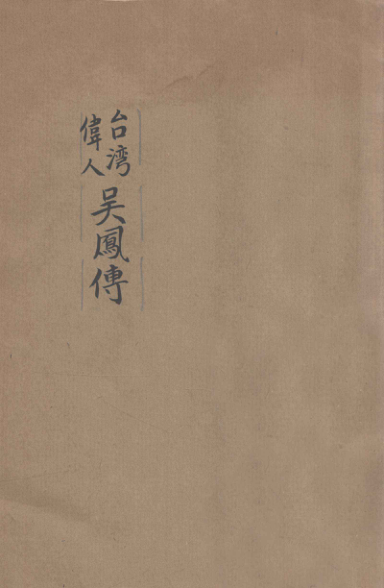 台湾
偉人
吴鳳傳